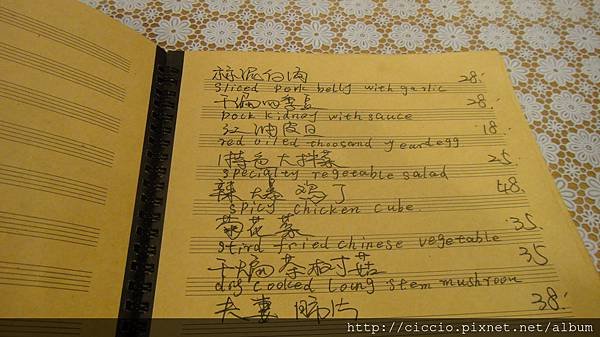 蒜泥白肉
Sliced Pork belly with garlic 28.
干煸四季豆 28.
Pock kidney with sauce
红油皮旦 18.
red oiled thoosand yeardegg
特色大拌菜 25.
specialty regetable salad
辣爆鸡丁 48.
spicy chicken cube
菊花菜 35.
stird fried chinese vegetable
干煸茶树菇 35
dry cooked loung stem mushroom
夫妻肺片 38.
http://ciccio.pixnet.net/album